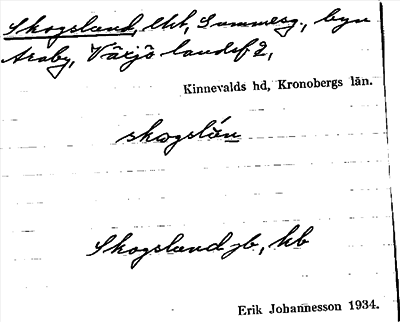 Skogsland, lht, Sommesg., byn
Araby, Växjö landsf 2,
Kinnevalds hd, Kronobergs län.
skogslán
Skogsland jb, hb
Erik Johannesson 1934.